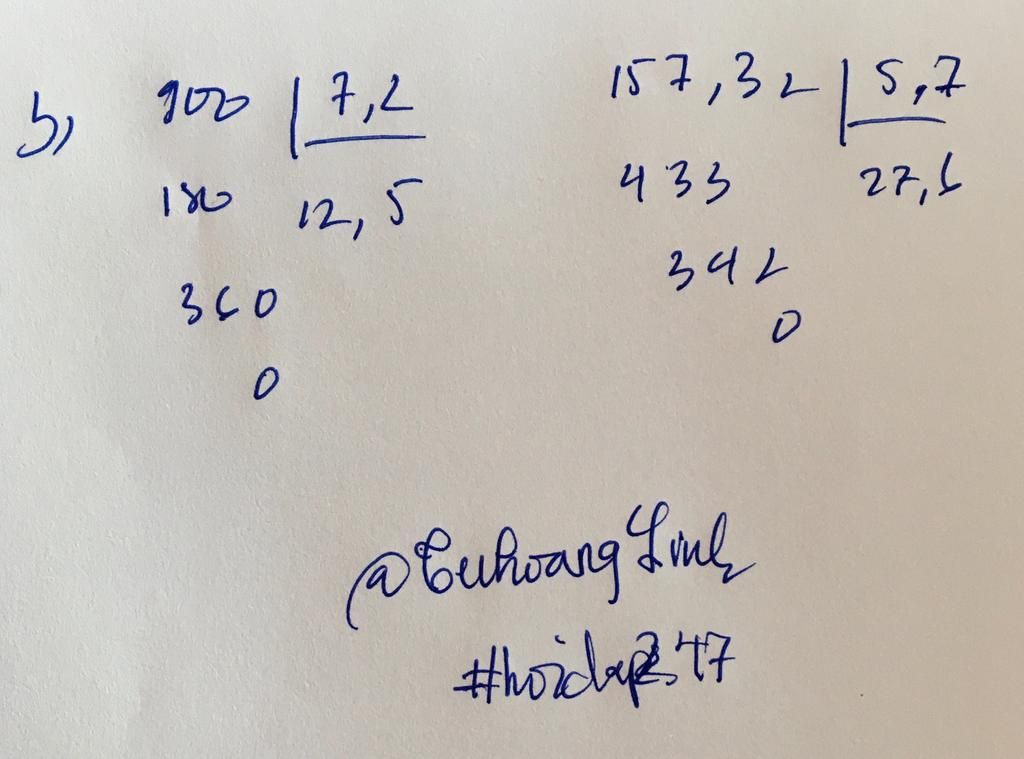 b, 900 7,2 157,32 5,7
180 12,5 433 27,6
360 342
0 0
Linh
#hoidap247